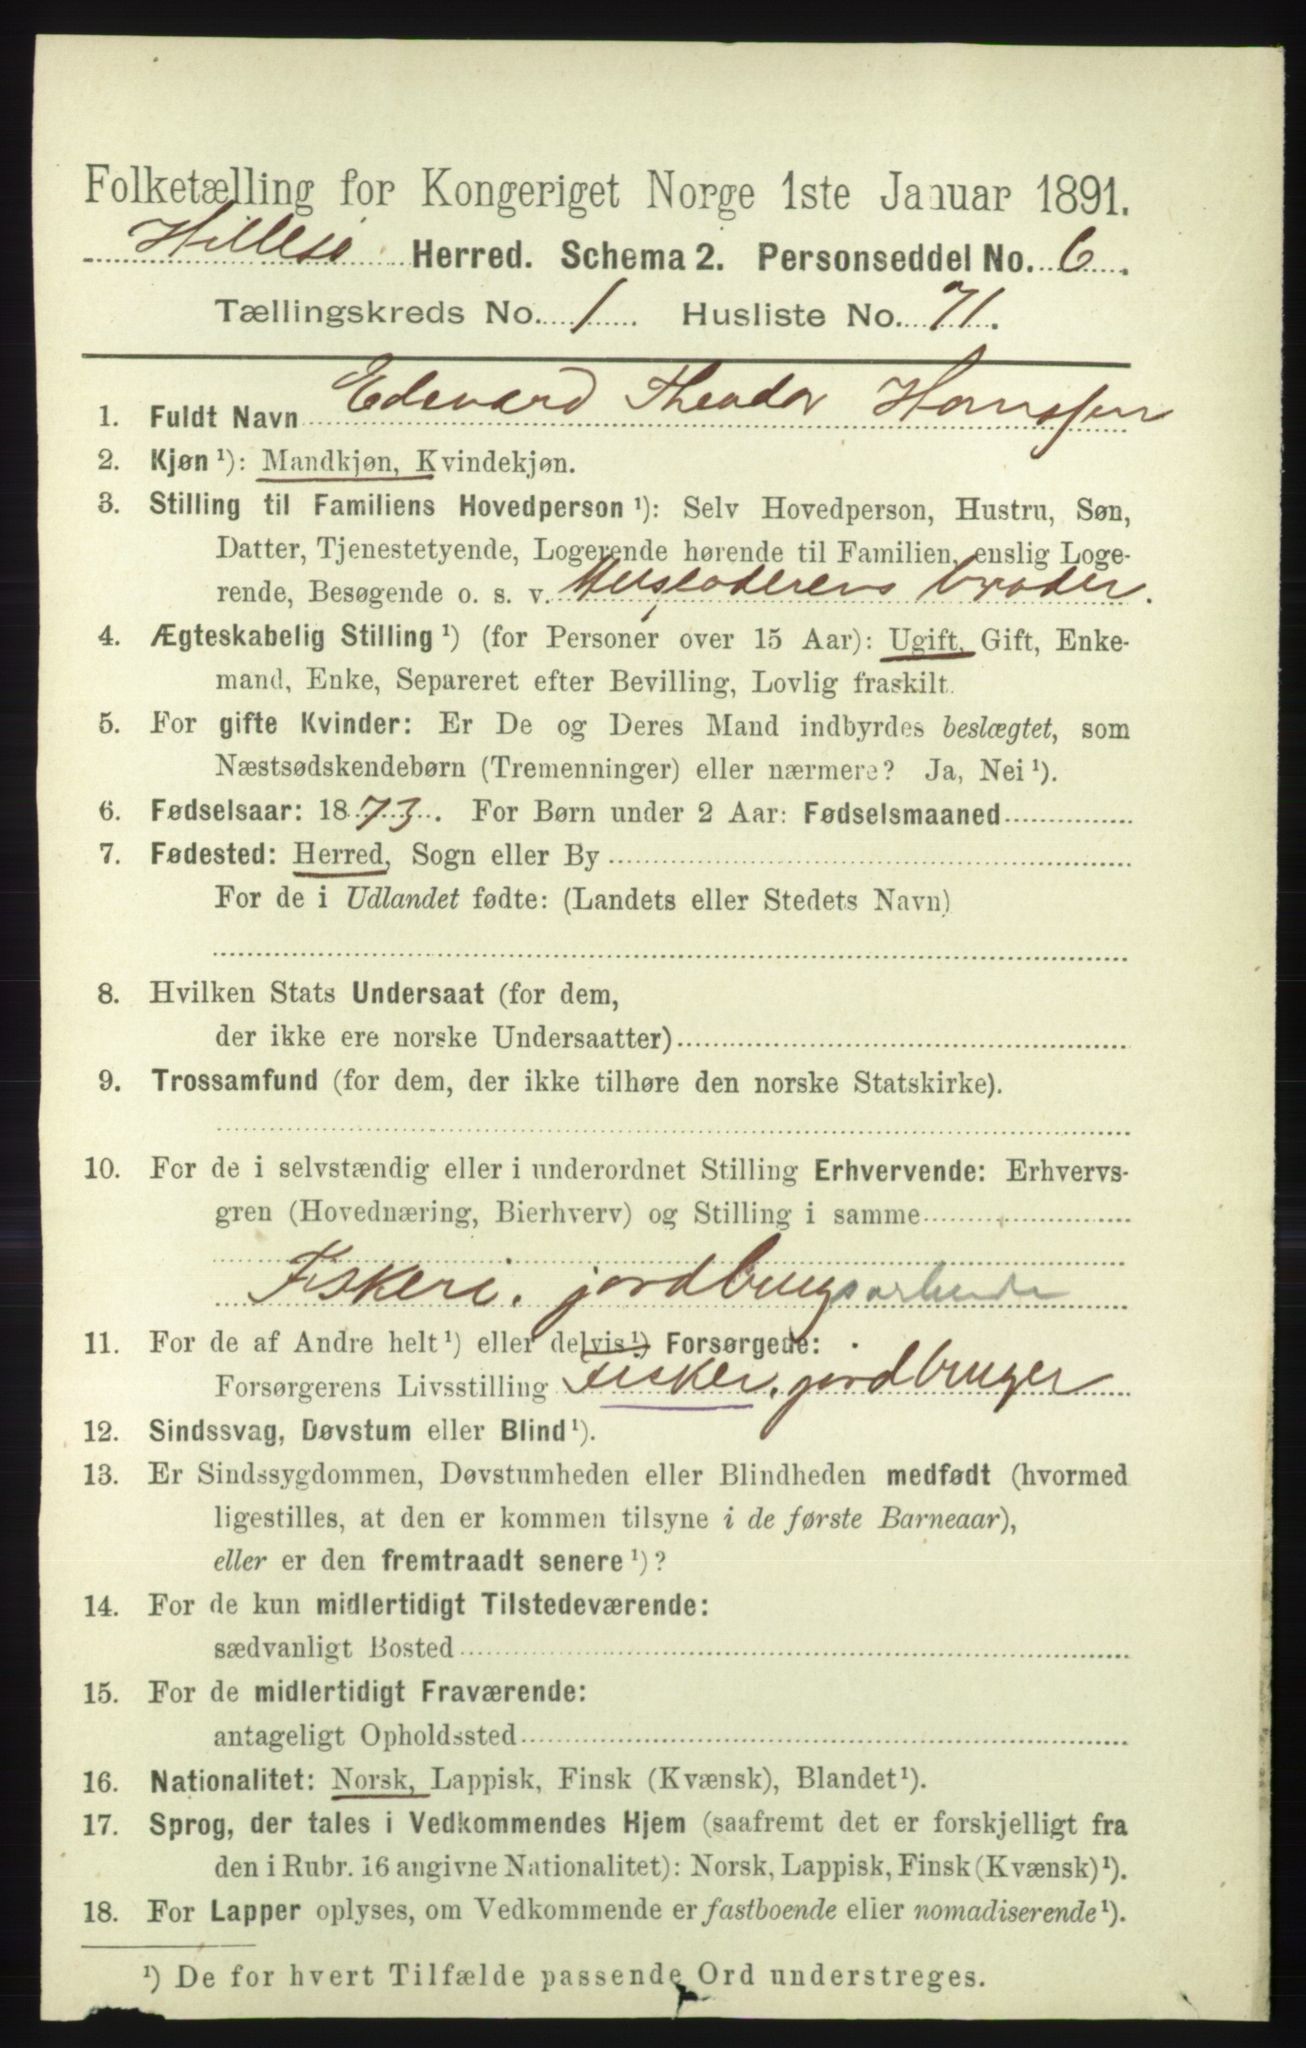 Folketælling for Kongeriget Norge 1ste Januar 1891.
Hillesø Herred. Schema 2. Personseddel No. 6.
Tællingskreds No. 1 Husliste No. 71.
1. Fuldt Navn Edevard Theodor Hanssen
2. Kjøn ¹): Mandkjøn, Kvindekjøn.
3. Stilling til Familiens Hovedperson ¹): Selv Hovedperson, Hustru, Søn,
Datter, Tjenestetyende, Logerende hørende til Familien, enslig Loge-
rende, Besøgende o. s. v. Husfaderens broder.
4. Ægteskabelig Stilling ¹) (for Personer over 15 Aar): Ugift, Gift, Enke-
mand, Enke, Separeret efter Bevilling, Lovlig fraskilt.
5. For gifte Kvinder: Er De og Deres Mand indbyrdes beslægtet, som
Næstsødskendebørn (Tremenninger) eller nærmere? Ja, Nei ¹).
6. Fødselsaar: 1873. For Børn under 2 Aar: Fødselsmaaned
7. Fødested: Herred, Sogn eller By
For de i Udlandet fødte: (Landets eller Stedets Navn)
8. Hvilken Stats Undersaat (for dem,
der ikke ere norske Undersaatter)
9. Trossamfund (for dem, der ikke tilhøre den norske Statskirke).
10. For de i selvstændig eller i underordnet Stilling Erhvervende: Erhvervs-
gren (Hovednæring, Bierhverv) og Stilling i samme
Fiskeri. jordbrugsarbeide
11. For de af Andre helt ¹) eller delvis ¹) Forsørgede:
Forsørgerens Livsstilling Fisker. jordbruger
12. Sindssvag, Døvstum eller Blind ¹).
13. Er Sindssygdommen, Døvstumheden eller Blindheden medfødt (hvormed
ligestilles, at den er kommen tilsyne i de første Barneaar),
eller er den fremtraadt senere ¹)?
14. For de kun midlertidigt Tilstedeværende:
sædvanligt Bosted
15. For de midlertidigt Fraværende:
antageligt Opholdssted
16. Nationalitet: Norsk, Lappisk, Finsk (Kvænsk), Blandet ¹).
17. Sprog, der tales i Vedkommendes Hjem (saafremt det er forskjelligt fra
den i Rubr. 16 angivne Nationalitet): Norsk, Lappisk, Finsk (Kvænsk) ¹).
18. For Lapper oplyses, om Vedkommende er fastboende eller nomadiserende ¹).
¹) De for hvert Tilfælde passende Ord understreges.